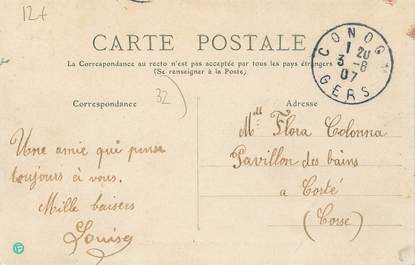 12+
CARTE POSTALE
La Correspondance au recto n'est pas acceptée par tous les pays étrangers
(Se renseigner à la Poste)
CONDOM
1 20
3 -8
07
GERS
Correspondance
32
Adresse
Une amie qui pense
toujours à vous.
Mille baisers
Louise
Mlle Flora Colonna
Pavillon des bains
a Corté
(Corse)